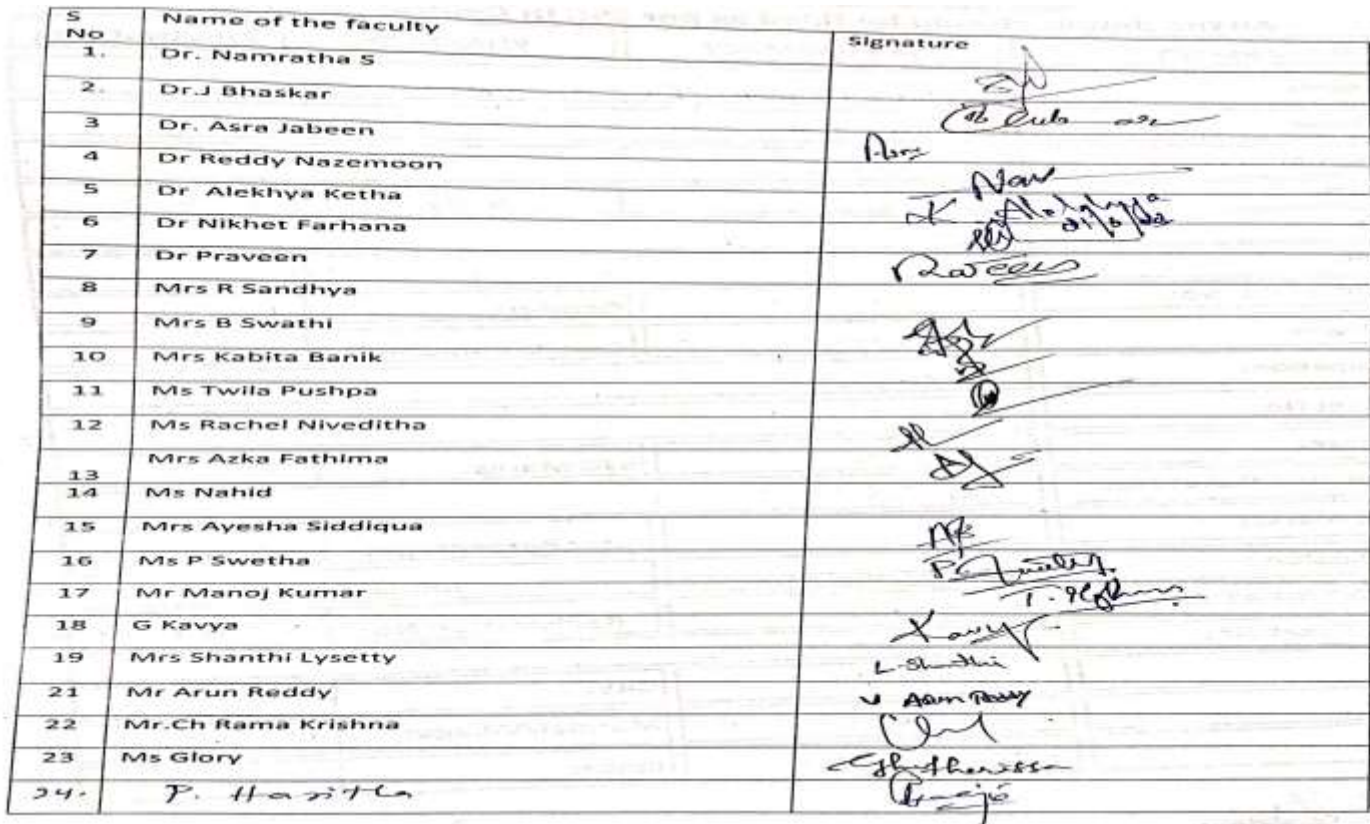 S No Name of the faculty Signature
1. Dr. Namratha S
2. Dr.J Bhaskar
3 Dr. Asra Jabeen
4 Dr Reddy Nazemoon
5 Dr Alekhya Ketha K Alekhya
6 Dr Nikhet Farhana
7 Dr Praveen
8 Mrs R Sandhya
9 Mrs B Swathi
10 Mrs Kabita Banik
11 Ms Twila Pushpa
12 Ms Rachel Niveditha
13 Mrs Azka Fathima
14 Ms Nahid
15 Mrs Ayesha Siddiqua
16 Ms P Swetha
17 Mr Manoj Kumar
18 G Kavya Kavya
19 Mrs Shanthi Lysetty L. Shanthi
21 Mr Arun Reddy V Arun Reddy
22 Mr.Ch Rama Krishna
23 Ms Glory
24. P. Haritha